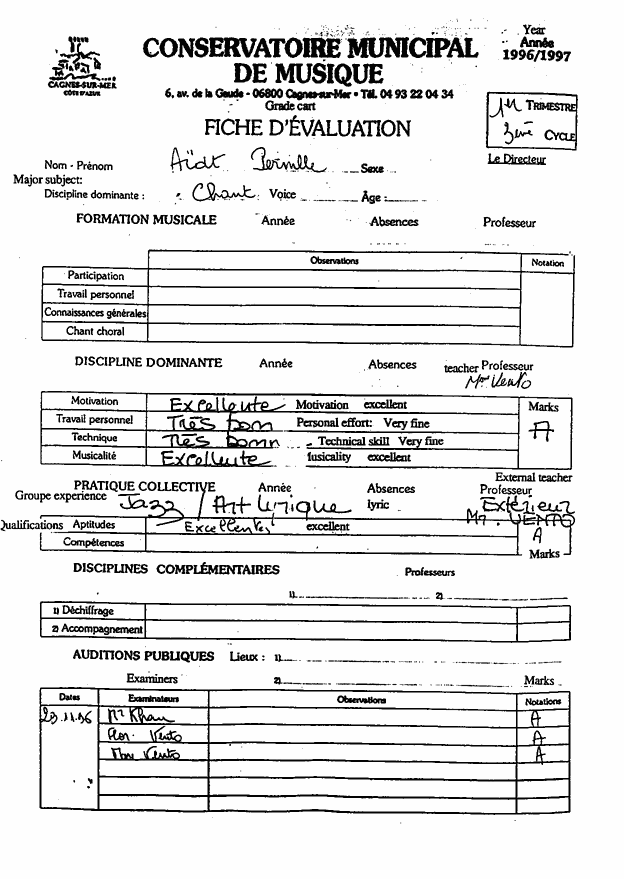 Year
Année
1996/1997
CAGNES-SUR-MER
CÔTE D'AZUR
CONSERVATOIRE MUNICIPAL
DE MUSIQUE
6, av. de la Gaude - 06800 Cagnes-sur-Mer • Tél. 04 93 22 04 34
Grade cart
FICHE D'ÉVALUATION
1er TRIMESTRE
3ème CYCLE
Le Directeur
Nom - Prénom Aïdt Pernille Sexe
Major subject:
Discipline dominante : Chant Voice Âge :
FORMATION MUSICALE Année Absences Professeur
Observations Notation
Participation
Travail personnel
Connaissances générales
Chant choral
DISCIPLINE DOMINANTE Année Absences teacher Professeur
Mme Vento
Motivation Excellente Motivation excellent Marks
Travail personnel Très bon Personal effort: Very fine A
Technique Très bonn Technical skill Very fine
Musicalité Excellente usicality excellent
External teacher
PRATIQUE COLLECTIVE Année Absences Professeur
Groupe experience Jazz / Art lyrique lyric Extérieur
Mr. VENTO
Qualifications Aptitudes Excellentes excellent A
Compétences Marks
DISCIPLINES COMPLÉMENTAIRES Professeurs
1) 2)
1) Déchiffrage
2) Accompagnement
AUDITIONS PUBLIQUES Lieux : 1)
Examiners 2) Marks
Dates Examinateurs Observations Notations
23.11.96 Mr Khan A
Vento A
Mme Vento A